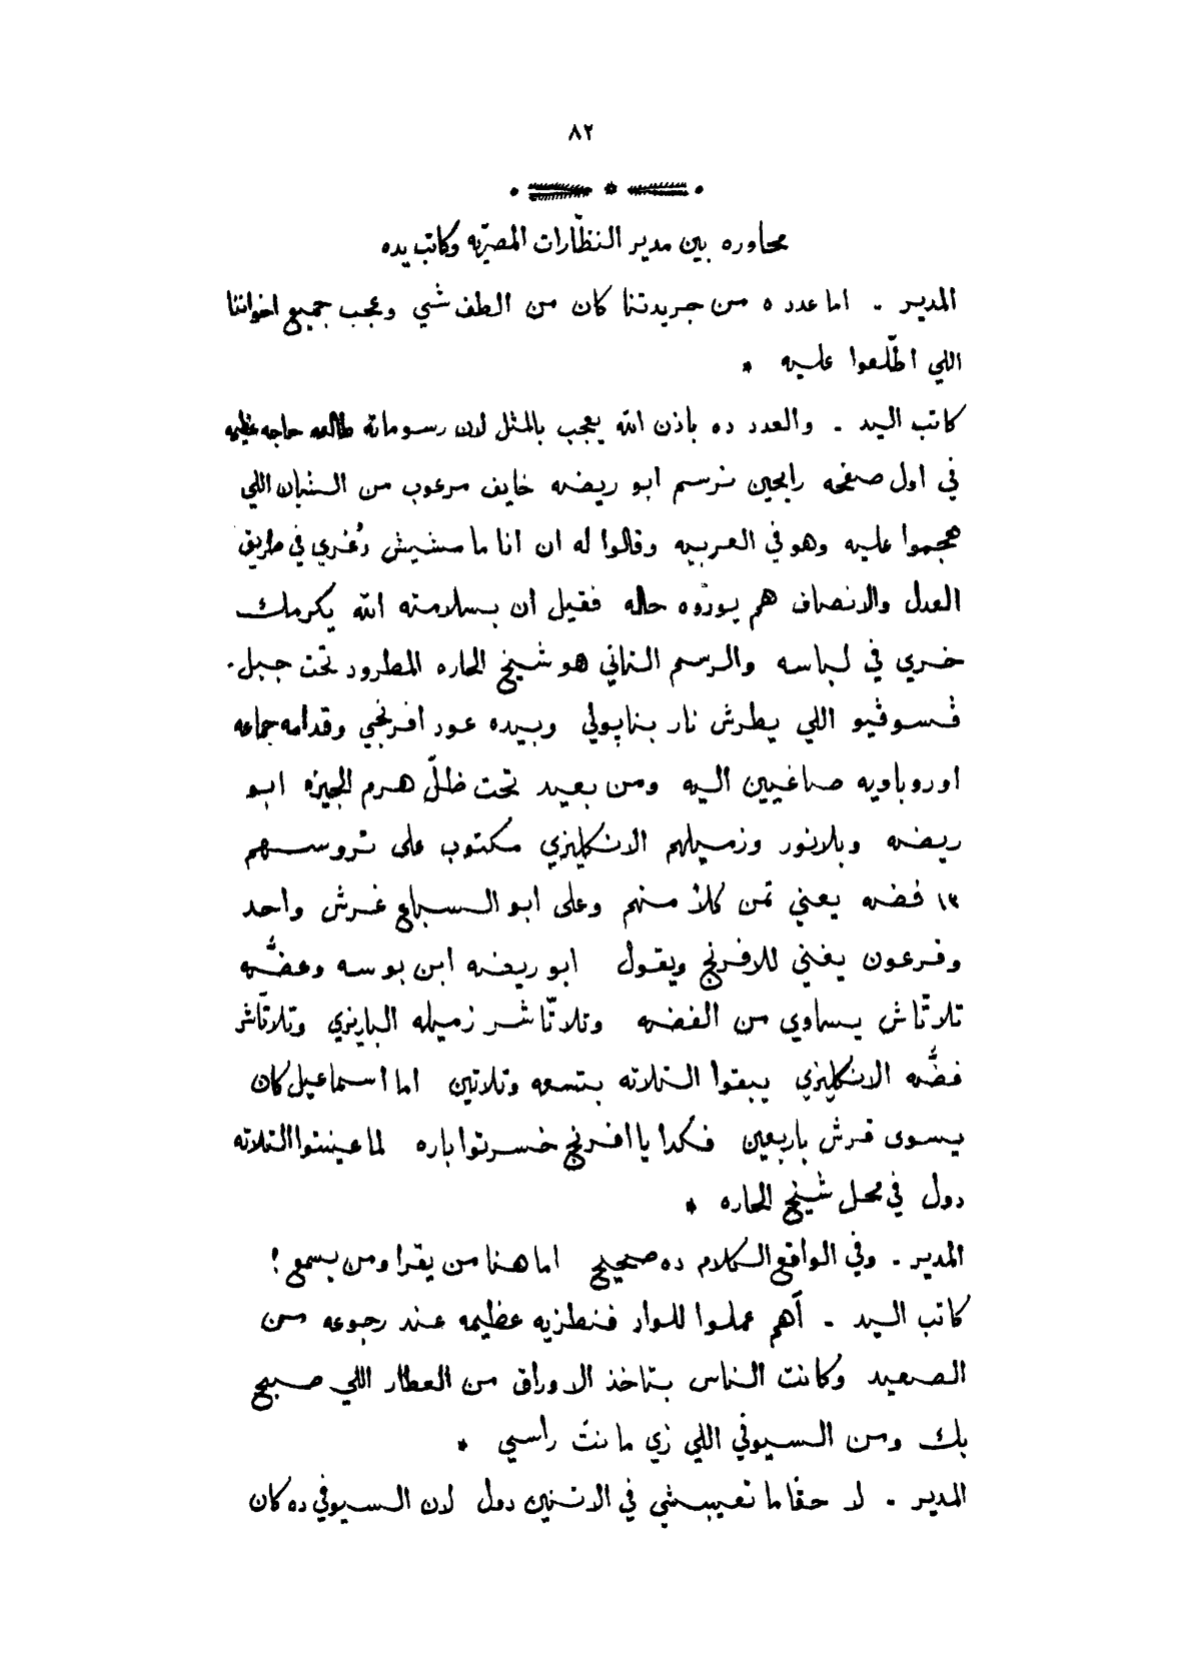 ٨٢
محاوره بين مدير النظّارات المصريّه وكاتب يده
المدير . اما عدد ٥ من جريدتنا كان من الطف شي وعجب جميع اخواننا
اللي اطّلعوا عليه *
كاتب اليد . والعدد ده باذن الله يعجب بالمثل لان رسوماته طالعه حاجه عظيمه
في اول صفحه رايحين نرسم ابو ريضه خايف مرعوب من الشبان اللي
هجموا عليه وهو في العربيه وقالوا له ان انا ما مشيش دُغري في طريق
العدل والانصاف هم يورّوه حاله فقيل ان بسلامته الله يكرمك
خري في لباسه والرسم التاني هو شيخ الحاره المطرود تحت جبل
ڤسوڤيو اللي يطرش نار بناپولي وبيده عود افرنجي وقدامه جماعه
اوروباويه صاغيين اليه ومن بعيد تحت ظلّ هرم الجيزه ابو
ريضه وبلانور وزميلهم الانكليزي مكتوب على تروسهم
١٣ فضه يعني تمن كلاً منهم وعلى ابو السباع غرش واحد
وفرعون يغني للافرنج ويقول ابو ريضه ابن بوسه وعضُّه
تلاتّاش يساوي من الفضه وتلاتّاشر زميله الباريزي وتلاتّاشر
فضُّه الانكليزي يبقوا التلاته بتسعه وتلاتين اما اسماعيل كان
يسوى قرش باربعين فكدا يا افرنج خسرتوا باره لما عينتوا التلاته
دول في محل شيخ الحاره *
المدير . وفي الواقع الكلام ده صحيح اما هنا من يقرا ومن يسمع !
كاتب اليد . آهم عملوا للواد فنطزيه عظيمه عند رجوعه من
الصعيد وكانت الناس بتاخذ الاوراق من العطار اللي صبح
بك ومن السيوفي اللي زي ما نت راسي *
المدير . لا حقّا ما تعيبشي في الاتنين دول لان السيوفي ده كان